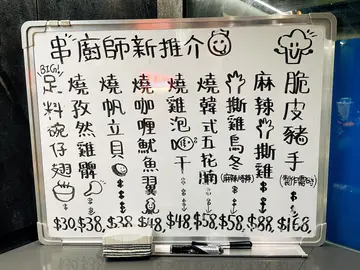 串廚師新推介
脆皮豬手
(製作需時)
$168
麻辣手撕雞
$88
撕雞烏冬
$58
燒韓式五花腩
$58
燒雞泡干
$48
燒咖喱魷魚翼
$48
燒帆立貝
$38
燒孜然雞髀
$38
BIG!
足料碗仔翅
$30